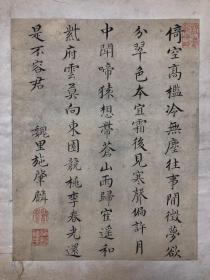 倚空高檻冷無塵往事閒徵夢欲
分翠色本宜霜後見寒聲偏許月
中聞啼猿想帶蒼山雨歸寉遥和
紫府雲莫向東園競桃李春光還
是不容君 魏里施肇麟